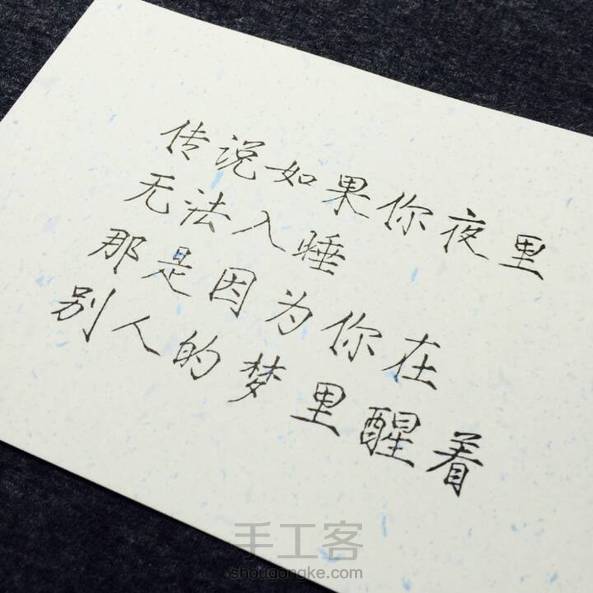 传说如果你夜里
无法入睡
那是因为你在
别人的梦里醒着
手工客
shougongke.com